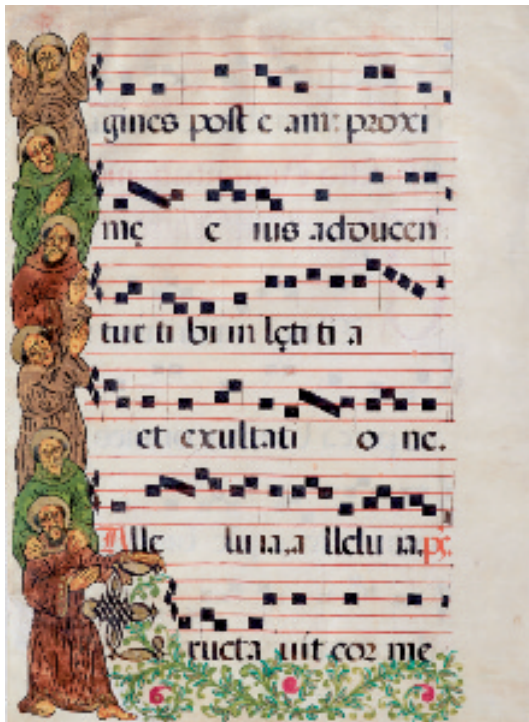 gines post e am: proxi
mę e ius adducen
tur ti bi in lęti ti a
et exultati o ne.
Alle lu ia, a llelu ia. ps.
Eructa uit cor me